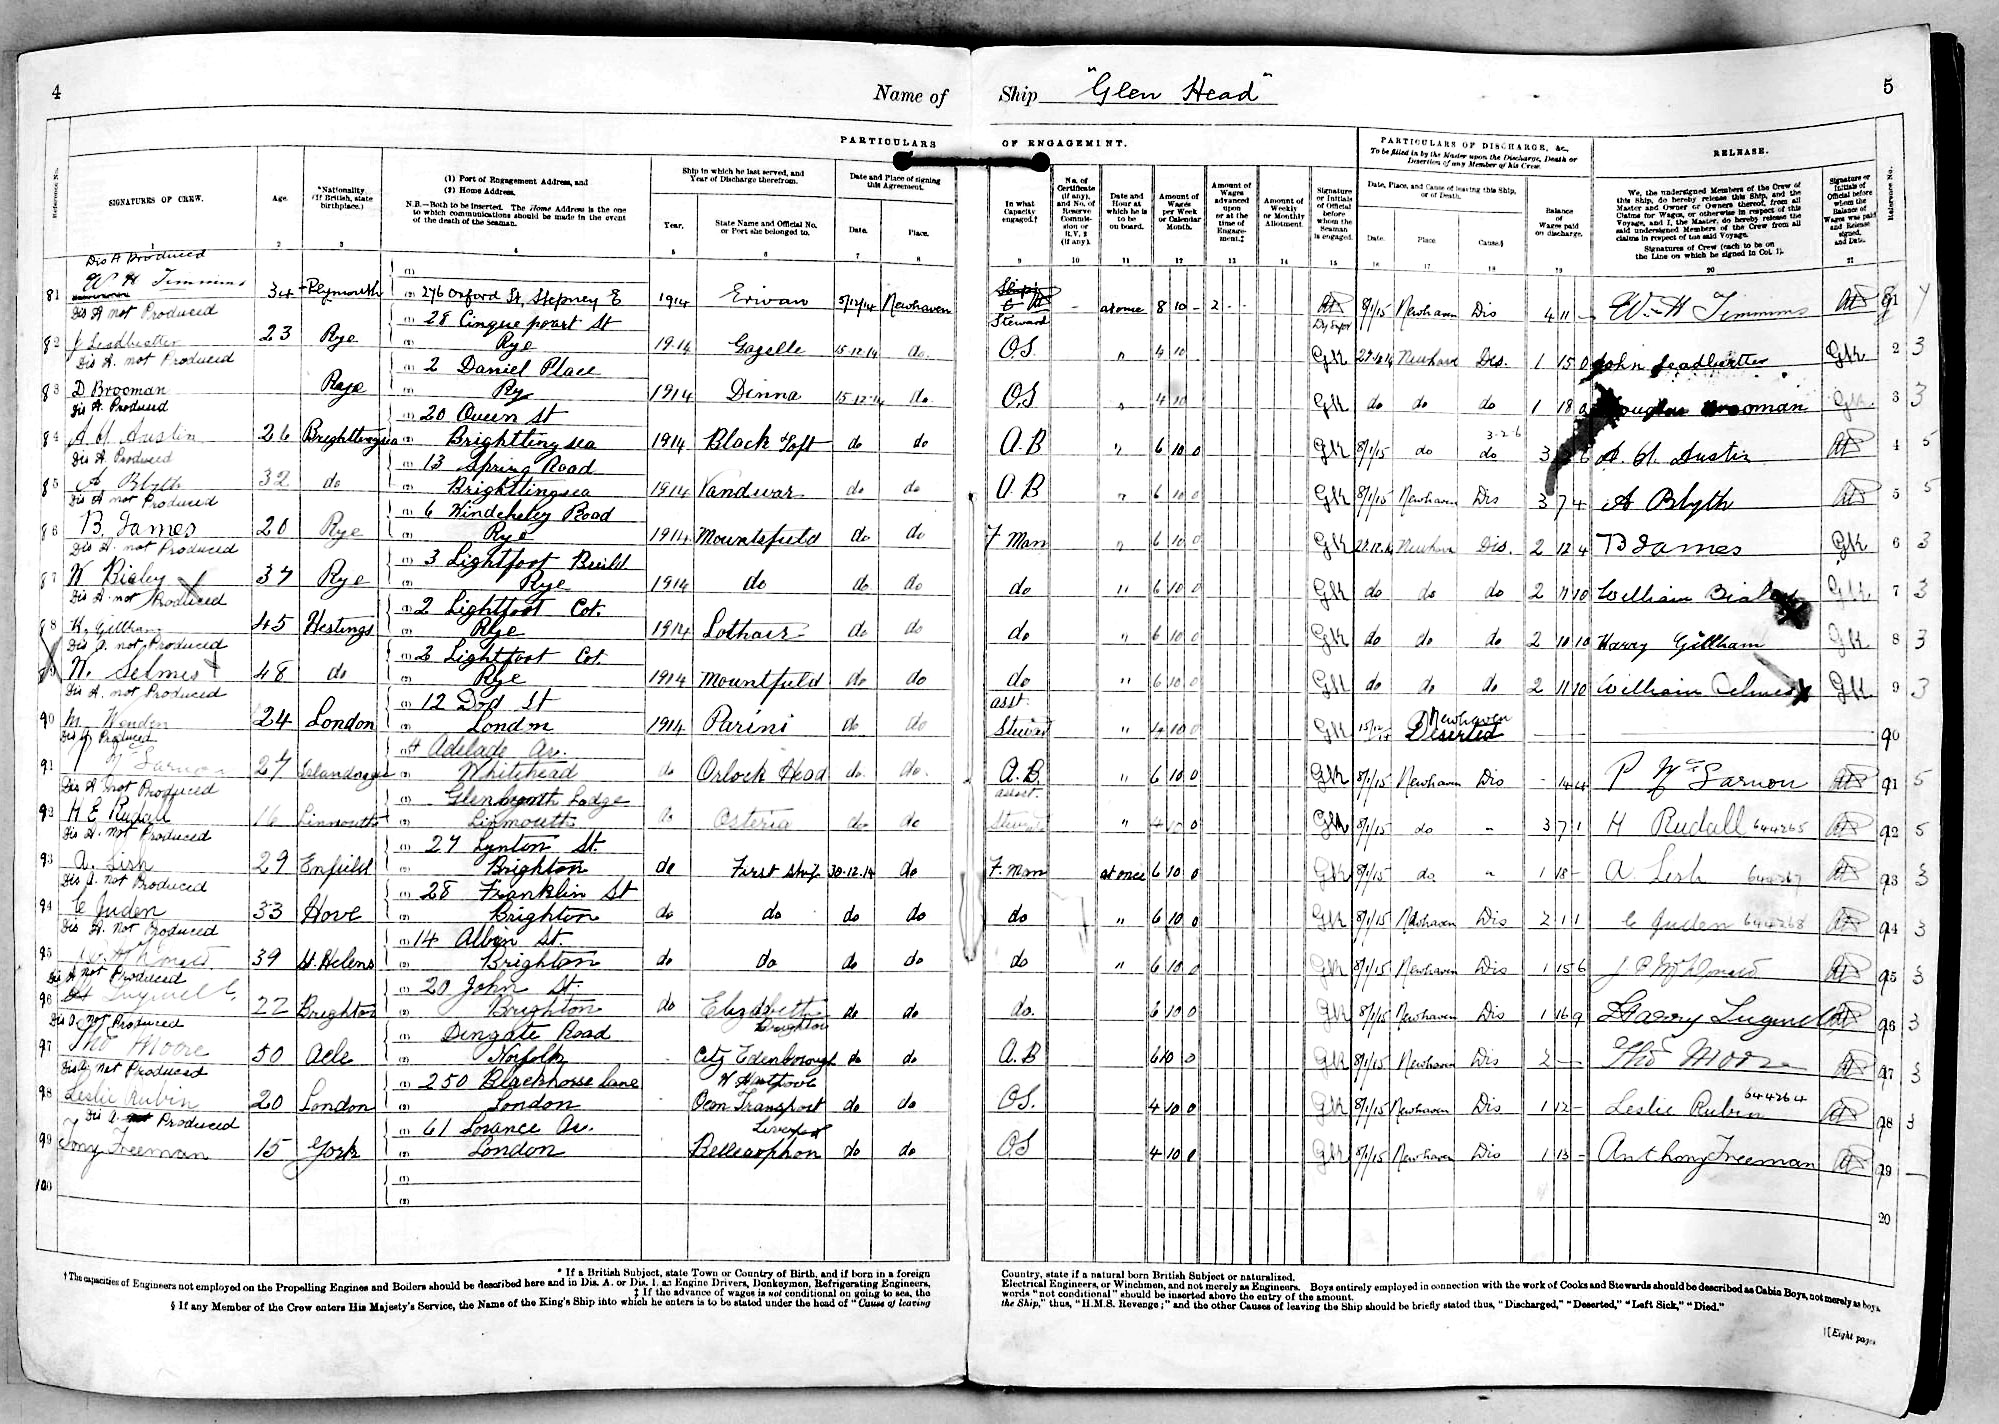 4
Name of
Ship "Glen Head"
5
PARTICULARS
OF ENGAGEMENT.
PARTICULARS OF DISCHARGE, &c.,
To be filled in by the Master upon the Discharge, Death or
Desertion of any Member of his Crew.
RELEASE.
Reference No.
SIGNATURES OF CREW.
Age.
*Nationality.
(If British, state
birthplace.)
(1) Port of Engagement Address, and
(2) Home Address.
N.B.—Both to be inserted. The Home Address is the one
to which communications should be made in the event
of the death of the Seaman.
Ship in which he last served, and
Year of Discharge therefrom.
Year.
State Name and Official No.
or Port she belonged to.
Date and Place of signing
this Agreement.
Date.
Place.
In what
Capacity
engaged.†
No. of
Certificate
(if any),
and No. of
Reserve
Commis-
sion or
R.V. 2
(if any).
Date and
Hour at
which he is
to be
on board.
Amount of
Wages
per Week
or Calendar
Month.
Amount of
Wages
advanced
upon
or at the
time of
Engage-
ment.‡
Amount of
Weekly
or Monthly
Allotment.
Signature
or Initials
of Official
before
whom the
Seaman
is engaged.
Date, Place, and Cause of leaving this Ship,
or of Death.
Date.
Place
Cause.§
Balance
of
Wages paid
on discharge.
We, the undersigned Members of the Crew of
this Ship, do hereby release the Ship, and the
Master and Owner or Owners thereof, from all
Claims for Wages, or otherwise in respect of this
Voyage, and I, the Master, do hereby release the
said undersigned Members of the Crew from all
claims in respect of the said Voyage.
Signatures of Crew (each to be on
the Line on which he signed in Col. 1).
Signature or
Initials of
Official before
whom the
Balance of
Wages was paid
and Release
signed,
and Date.
Reference No.
1 2 3 4 5 6 7 8 9 10 11 12 13 14 15 16 17 18 19 20 21
Dis A Produced
81 W H Timmins 34 Plymouth (1)
(2) 276 Oxford St, Stepney E 1914 Erivan 5/12/14 Newhaven Steward at once 8 10 - 2 - - 9/1/15 Newhaven Dis 4 11 - W. H Timmins
Dis A not Produced
82 J Leadbetter 23 Rye (1) 28 Cinque pourt St
(2) Rye 1914 Gazelle 15-12-14 do. O.S. " 4 10 GK Dis. 1 15 0 John Leadbetter GK 2 3
Dis A. not Produced
83 D Brooman Raye (1) 2 Daniel Place
(2) Ry 1914 Dinna 15-12-14 do O.S " 4 10 GK do do do 1 18 Douglas Brooman GK 3 3
Dis A. Produced
84 A H Austin 26 Brightlingsea (1) 20 Queen St
(2) Brightlingsea 1914 Black Toft do do A.B " 6 10 0 GK 8/1/15 do do 3-2-6 A. H. Austin 4 5
Dis A Produced
85 A Blyth 32 do (1) 13 Spring Road
(2) Brightlingsea 1914 Vandwar do do A.B " 6 10 0 GK 8/1/15 Newhaven Dis 3 7 4 A Blyth 5 5
Dis A not Produced
86 B. James 20 Rye (1) 6 Winchesley Road
(2) Rye 1914 Mountsfield do do F Man " 6 10 0 GK Dis. 2 12 4 B James GK 6 3
Dis A. not Produced
87 W Bigley 37 Rye (1) 3 Lightfoot Build
(2) Rye 1914 do do do do " 6 10 0 GK do do do 2 11 10 William GK 7 3
Dis A. not Produced
88 H. Gillham 45 Hestings (1) 2 Lightfoot Cot.
(2) Rye 1914 Lothair do do do " 6 10 0 GK do do do 2 10 10 Harry Gillham GK 8 3
Dis A. not Produced
W. Selmes 48 do (1) 2 Lightfoot Cot.
(2) Rye 1914 Mountfield do do do " 6 10 0 GK do do do 2 11 10 William Selmes GK 9 3
Dis A. not Produced
90 M. Wenden 24 London (1) 12 Dod St
(2) London 1914 Parini do do asst. Steward " 4 10 0 GK Newhaven Deserted 90
Dis A Produced
91 27 (1) 4 Adelade Av.
(2) Whitehead do Orlock Head do. do. A.B. " 6 10 0 GK 8/1/15 Newhaven Dis - 14 4 P Mc Larnon 91 5
Dis A not Produced
92 H E Rudall 16 Linmouth (1) Glenbyoth Lodge
(2) Linmouth do Osteria do do assist. Steward " 4 10 0 GK 8/1/15 do " 3 7 1 H Rudall 644265 92 5
Dis A. not Produced
93 A. Lish 29 Enfield (1) 27 Lynton St.
(2) Brighton do First Ship 30-12-14 do F. Man at once 6 10 0 GK 8/1/15 do " 1 18 - A Lish 644267 93 3
Dis A. not Produced
94 C Juden 33 Hove (1) 28 Franklin St
(2) Brighton do do do do do " 6 10 0 GK 8/1/15 Newhaven Dis 2 1 1 C Juden 644268 94 3
Dis A. not Produced
95 39 St. Helens (1) 14 Albion St.
(2) Brighton do do do do do " 6 10 0 GK 8/1/15 Newhaven Dis 1 15 6 95 3
Dis A not Produced
96 22 Brighton (1) 20 John St.
(2) Brighton do Elizabeth Brighton do do do. 6 10 0 GK 8/1/15 Newhaven Dis 1 16 9 Harry 96 3
Dis A. not Produced
97 Thos Moore 50 Acle (1) Dengate Road
(2) Norfolk City Edenborough do do A.B 6 10 0 GK 8/1/15 Newhaven Dis 2 — Thos Moore 97 3
Dis A. not Produced
98 Leslie Rubin 20 London (1) 250 Blackhorse Lane
(2) London W Hartpool Ocen Transport do do O.S. 4 10 0 GK 8/1/15 Newhaven Dis 1 12 - Leslie Rubin 644264 98 3
Dis A. not Produced
99 Tony Freeman 15 York (1) 61 Lorance Av.
(2) London Liverpool Bellerophon do do O.S 4 10 0 GK 8/1/15 Newhaven Dis 1 13 - Anthony Freeman 99
100 (1)
(2) 20
* If a British Subject, state Town or Country of Birth, and if born in a foreign
Country, state if a natural born British Subject or naturalized.
† The capacities of Engineers not employed on the Propelling Engines and Boilers should be described here and in Dis. A. or Dis. 1. as Engine Drivers, Donkeymen, Refrigerating Engineers,
Electrical Engineers, or Winchmen, and not merely as Engineers. Boys entirely employed in connection with the work of Cooks and Stewards should be described as Cabin Boys, not merely as boys.
‡ If the advance of wages is not conditional on going to sea, the
words "not conditional" should be inserted above the entry of the amount.
§ If any Member of the Crew enters His Majesty's Service, the Name of the King's Ship into which he enters is to be stated under the head of "Cause of leaving
the Ship," thus, "H.M.S. Revenge;" and the other Causes of leaving the Ship should be briefly stated thus, "Discharged," "Deserted," "Left Sick," "Died."
[Eight pages